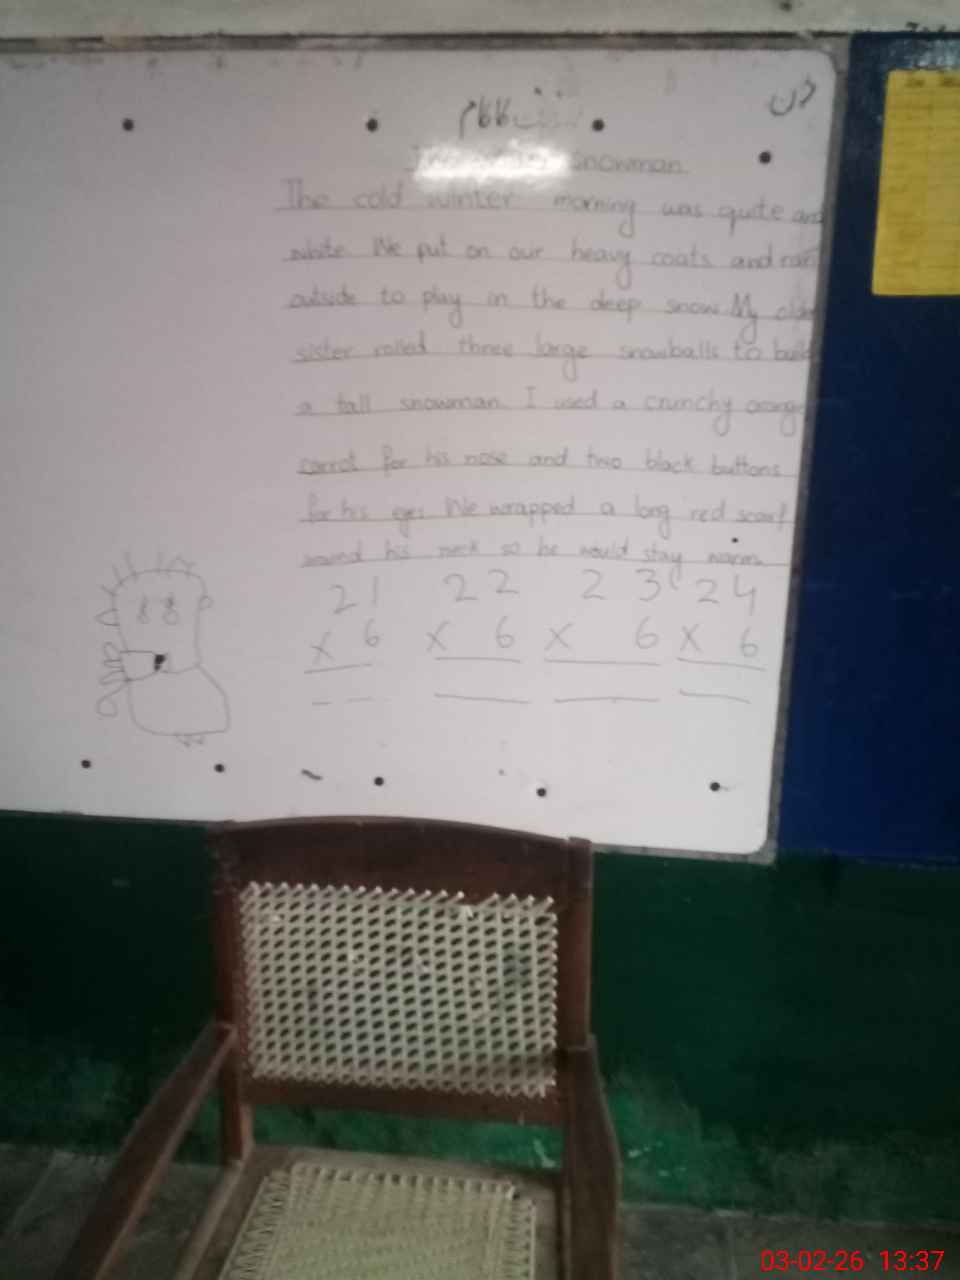 دن
کا کام
snowman
The cold winter morning was quite and
white We put on our heavy coats and ran
outside to play in the deep snow My older
sister rolled three large snowballs to build
a tall snowman I used a crunchy orange
carrot for his nose and two black buttons
for his eyes We wrapped a long red scarf
around his neck so he would stay warm.
21 22 23 24
× 6 × 6 × 6 × 6
03-02-26 13:37